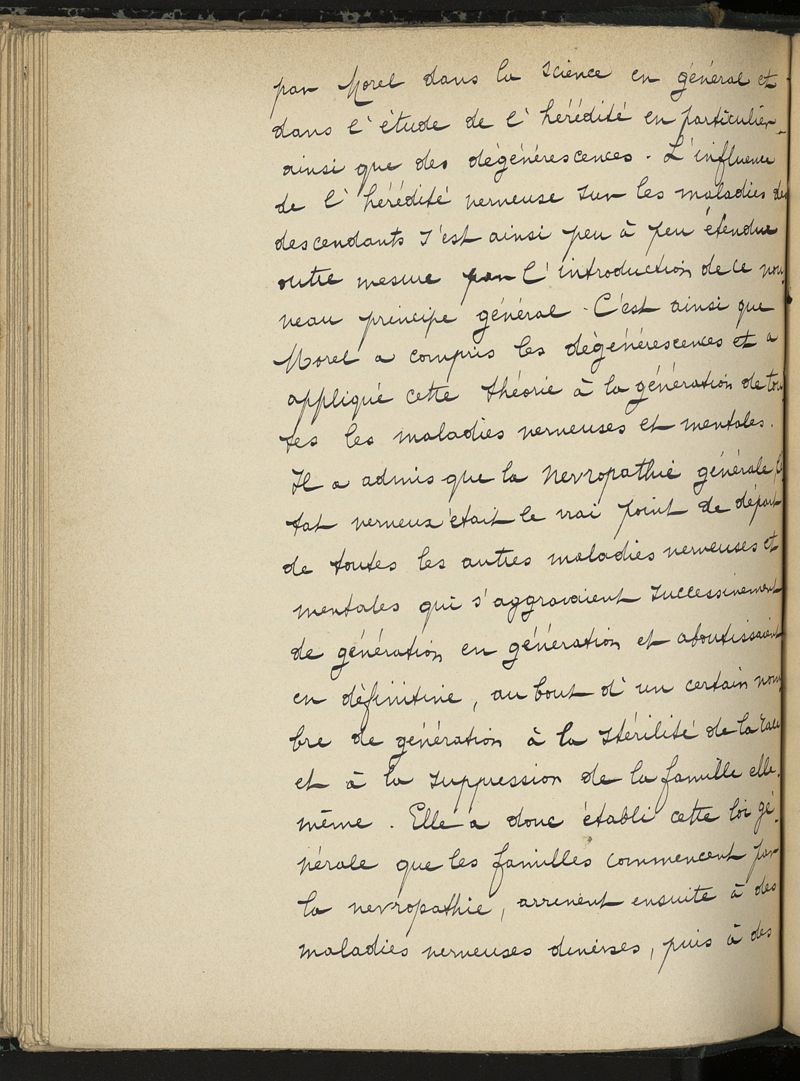 par Morel dans la science en général et
dans l'étude de l'hérédité en particulier
ainsi que des dégénérescences. L'influence
de l'hérédité nerveuse sur les maladies des
descendants s'est ainsi peu à peu étendue
outre mesure par l'introduction de ce nou
veau principe général. C'est ainsi que
Morel a compris les dégénérescences et a
appliqué cette théorie à la génération de tou
tes les maladies nerveuses et mentales.
Il a admis que la nevropathie générale
tat nerveux était le vrai point de départ
de toutes les autres maladies nerveuses et
mentales qui s'aggravaient successivement
de génération en génération et aboutissaient
en définitive, au bout d'un certain nom
bre de génération à la stérilité de la race
et à la suppression de la famille elle-
même. Elle a donc établi cette loi gé-
nérale que les familles commencent par
la nevropathie, arrivent ensuite à des
maladies nerveuses diverses, puis à des